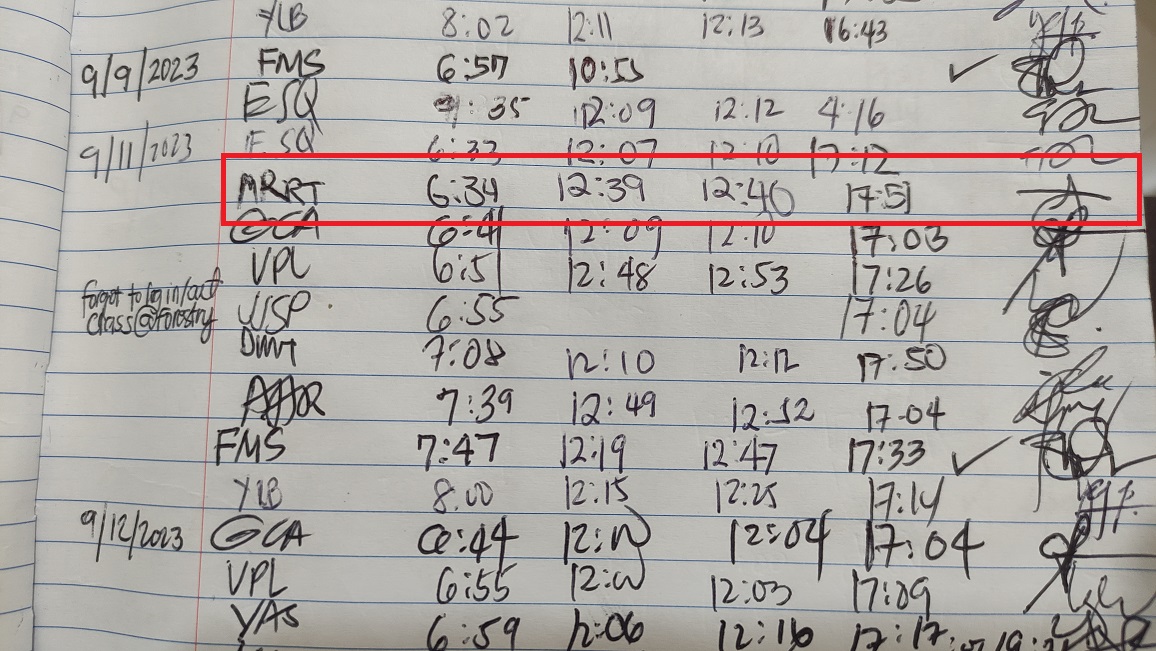 YLB 8:02 12:11 12:13 16:43
9/9/2023 FMS 6:57 10:55
ESQ 35 12:09 12:12 4:16
9/11/2023 ESQ 6:33 12:07 12:10 17:12
MRRT 6:34 12:39 12:40 17:51
GCA 6:41 12:09 12:10 17:03
VPL 6:51 12:48 12:53 17:26
forgot to log in/out
class@forestry
6:55 17:04
7:08 12:10 12:12 17:50
7:39 12:49 12:52 17:04
FMS 7:47 12:19 12:47 17:33
YLB 8:00 12:15 12:25 17:14
9/12/2023 GCA 6:44 12:04 17:04
VPL 6:55 12:03 17:09
YAS 6:59 12:06 12:16 17:17